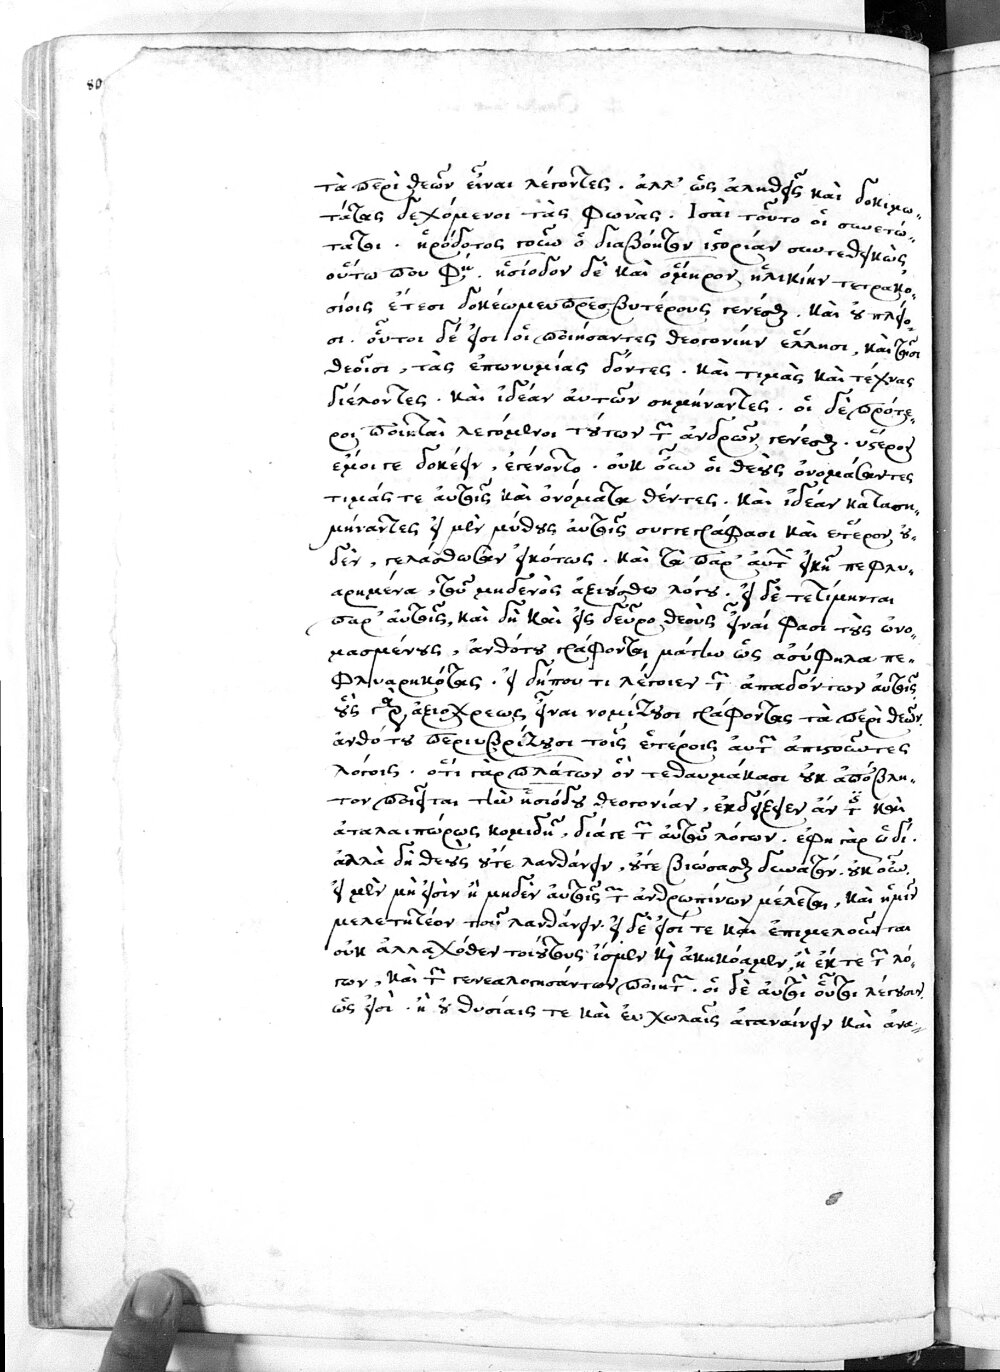 80
τὰ περὶ θεῶν εἶναι λέγοντες. ἀλλ' ὡς ἀληθεῖς καὶ δοκιμω-
τάτας δεχόμενοι τὰς φωνὰς. Ἴσασι τοῦτο οἱ συνετώ-
τατοι. ἡρόδοτος γοῦν ὁ διαβόητον ἱστορίαν συντεθηκὼς
οὕτω που φη. ἡσίοδον δὲ καὶ ὅμηρον ἡλικίην τετρακο-
σίοις ἔτεσι δοκέω μευ πρεσβυτέρους γενέσθαι. καὶ οὐ πλέο-
σι. οὗτοι δέ εἰσι οἱ ποιήσαντες θεογονίην ἕλλησι, καὶ τοῖσι
θεοῖσι, τὰς ἐπωνυμίας δόντες. καὶ τιμὰς καὶ τέχνας
διέλοντες. καὶ ἰδέαν αὐτῶν σημήναντες. οἱ δὲ πρότε-
ροι ποιηταὶ λεγόμενοι τούτων τῶν ἀνδρῶν γενέσθαι. ὕστερον
ἐμοί γε δοκέειν, ἐγένοντο. οὐκ οὖν οἱ θεοὺς ὀνομάσαντες
τιμάς τε αὐτοῖς καὶ ὀνόματα θέντες. καὶ ἰδέαν κατασημ-
μήναντες εἰ μὲν μύθους αὐτοῖς συγγεγράφασι καὶ ἕτερον οὐ-
δὲν, γελάσθωσαν εἰκότως. καὶ τὰ παρ' αὐτῶν εἰκῆ πεφλυ-
αρημένα, τοῦ μηδενὸς ἀξιούσθω λόγου. εἰ δὲ τετίμηνται
παρ' αὐτοῖς, καὶ δὴ καὶ εἰς δεῦρο θεοὺς εἶναί φασι τοὺς ὠνο-
μασμένους, ἀνθότου γράφονται μάτην ὡς ἀσύφηλα πε-
φλυαρηκότας. εἰ δήπου τι λέγοιεν τῶν ἀπαδόντων αὐτοῖς
οὓς γὰρ ἀξιόχρεως εἶναι νομίζουσι γράφοντας τὰ περὶ θεῶν
ἀνθότου περιυβρίζουσι τοῖς ἑτέροις αὐτῶν ἀπιστοῦντες
λόγοις. ὅτι γὰρ πλάτων ὃν τεθαυμάκασι οὐκ ἀπόβλη-
τον ποιεῖται τὴν ἡσιόδου θεογονίαν, ἐκδέξειεν ἄν τις καὶ
ἀταλαιπώρως κομιδῆ, διά γε τῶν αὐτοῦ λόγων. ἔφη γὰρ ὡδί.
ἀλλὰ δὴ θεοὺς οὔτε λανθάνειν, οὔτε βιώσασθαι δυνατόν. οὐκ οὖν
εἰ μὲν μὴ εἰσὶν ἢ μηδὲν αὐτοῖς τῶν ἀνθρωπίνων μέλεται, καὶ ἡμῖν
μελετητέον τοῦ λανθάνειν. εἰ δὲ εἰσί τε καὶ ἐπιμελοῦνται
οὐκ ἀλλαχόθεν τοι αὐτοὺς ἴσμεν καὶ ἀκηκόαμεν, ἢ ἔκ τε τῶν λό-
γων, καὶ τῶν γενεαλογησάντων ποιητῶν. οἱ δὲ αὐτοὶ οὗτοι λέγουσιν
ὡς εἰσὶ. ἢ οὐ θυσίαις τε καὶ εὐχωλαῖς ἀγαναίνειν καὶ ἀνα-